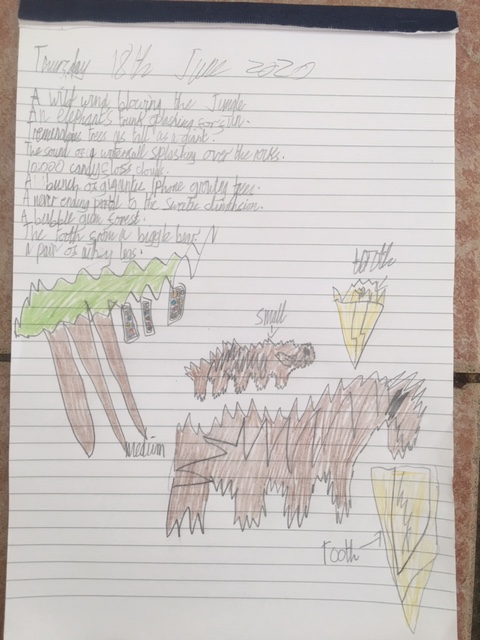 Thursday 18th June 2020
A wild wind blowing the Jungle
An elephants trunk splashing for fun.
Tremendous trees as tall as a giant.
The sound of a waterfall splashing over the rocks.
10,000 candy floss clouds.
A bunch of gigantic iphone growing trees.
A never ending portal to the sweetie dimension.
A bubble gum forest.
The tooth from a biggle bear
a pair of leg.
tooth
small
medium
tooth